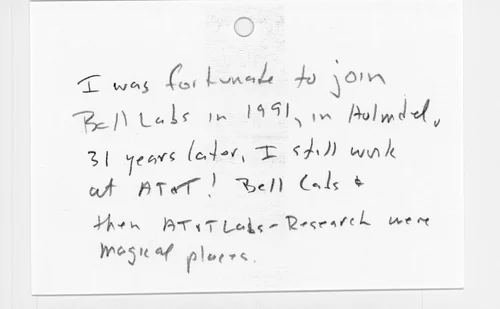 I was fortunate to join
Bell Labs in 1991, in Holmdel,
31 years later, I still work
at AT&T! Bell Labs &
then AT&T Labs-Research were
magical places.